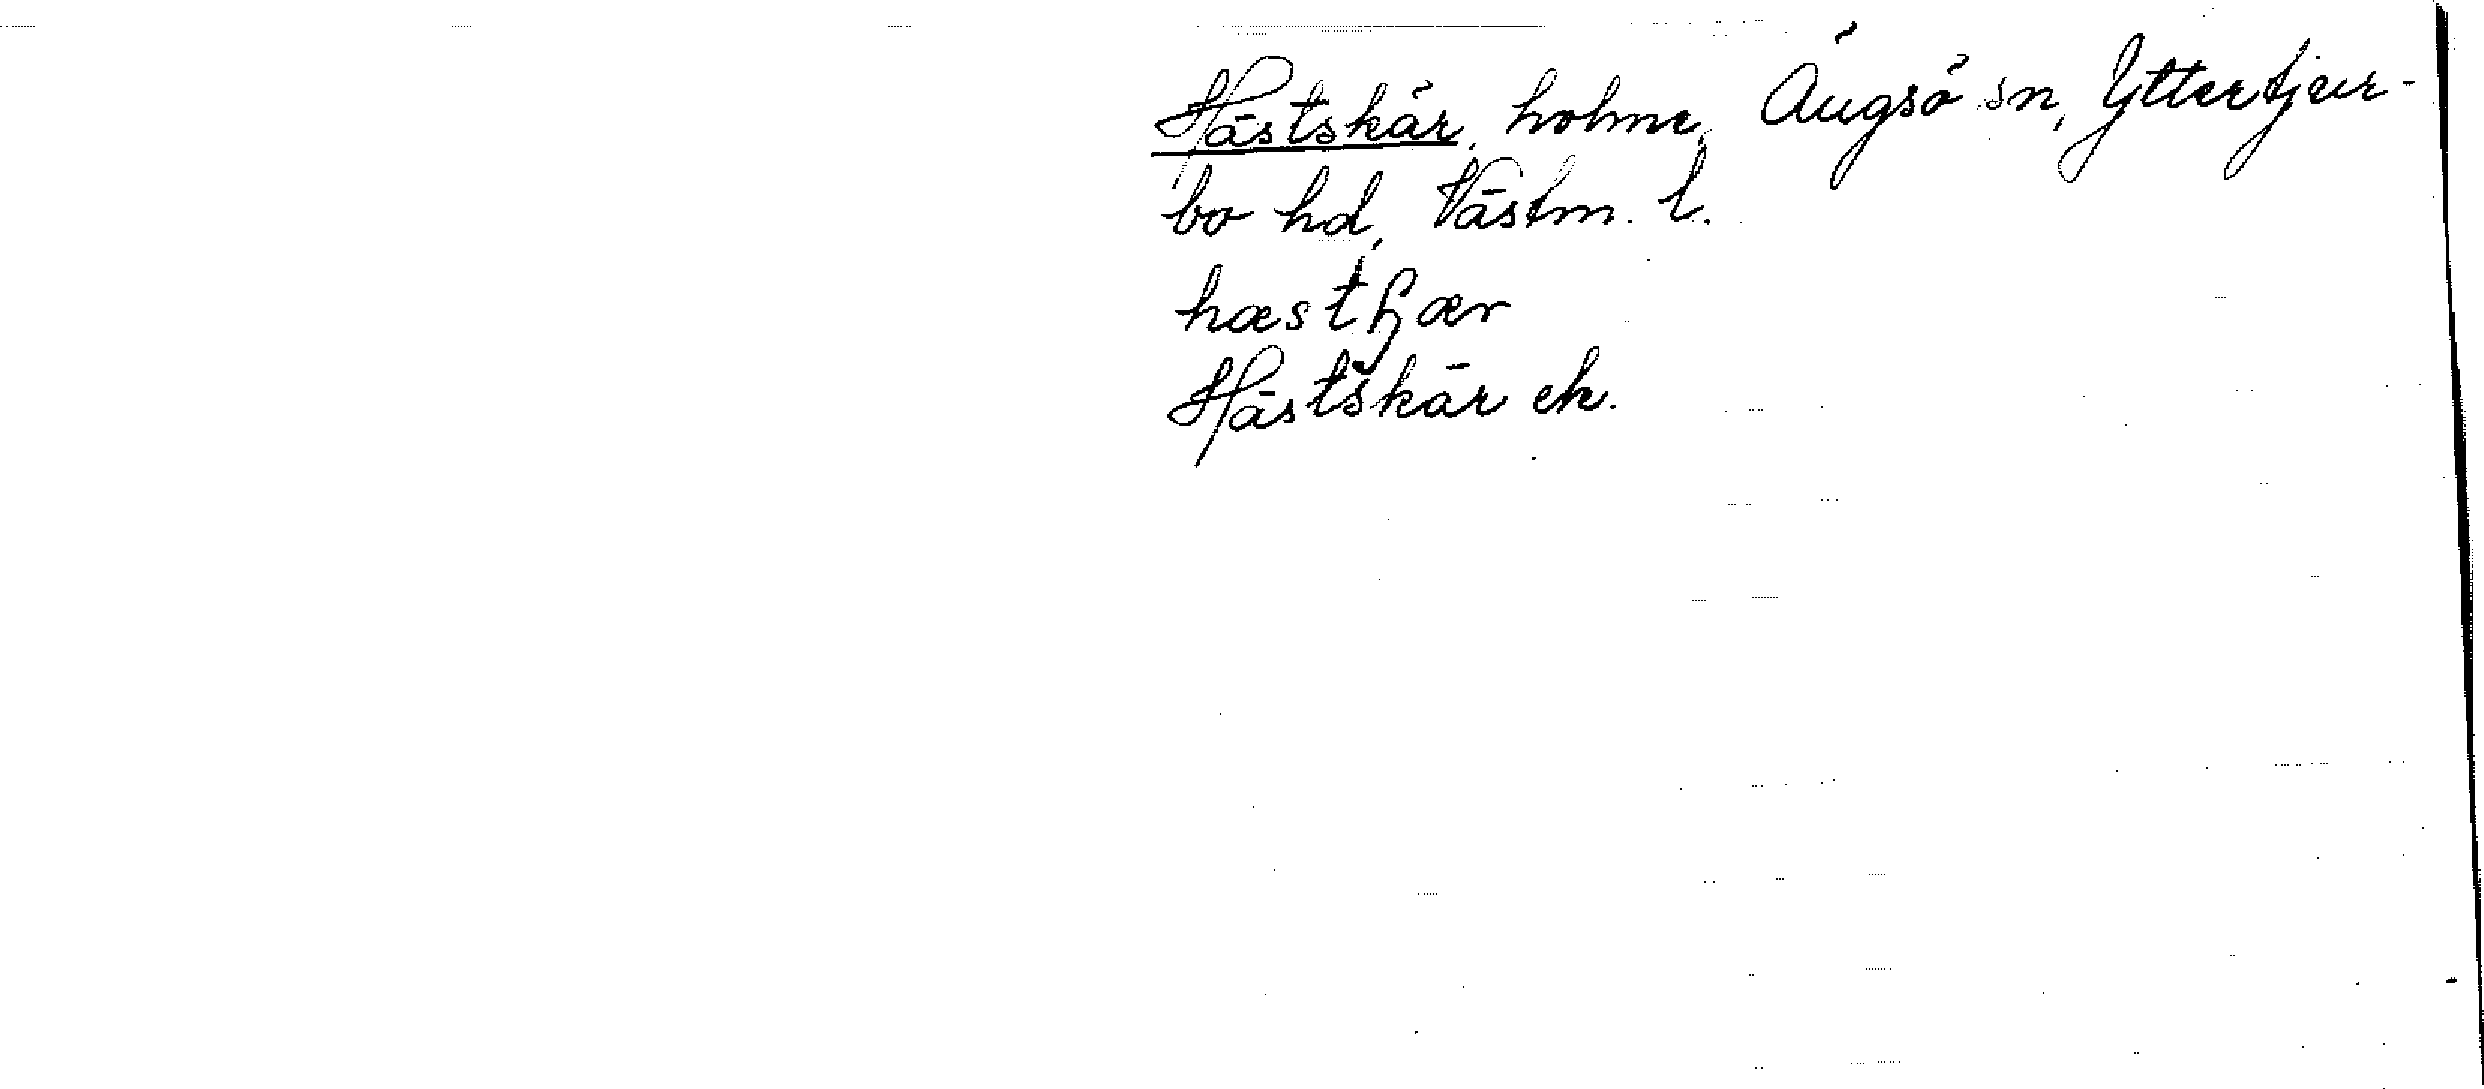 Hästskär, holme, Ängsö sn, Yttertjur-
bo hd, Västm. l.
hæstɧær
Hästskär ek.